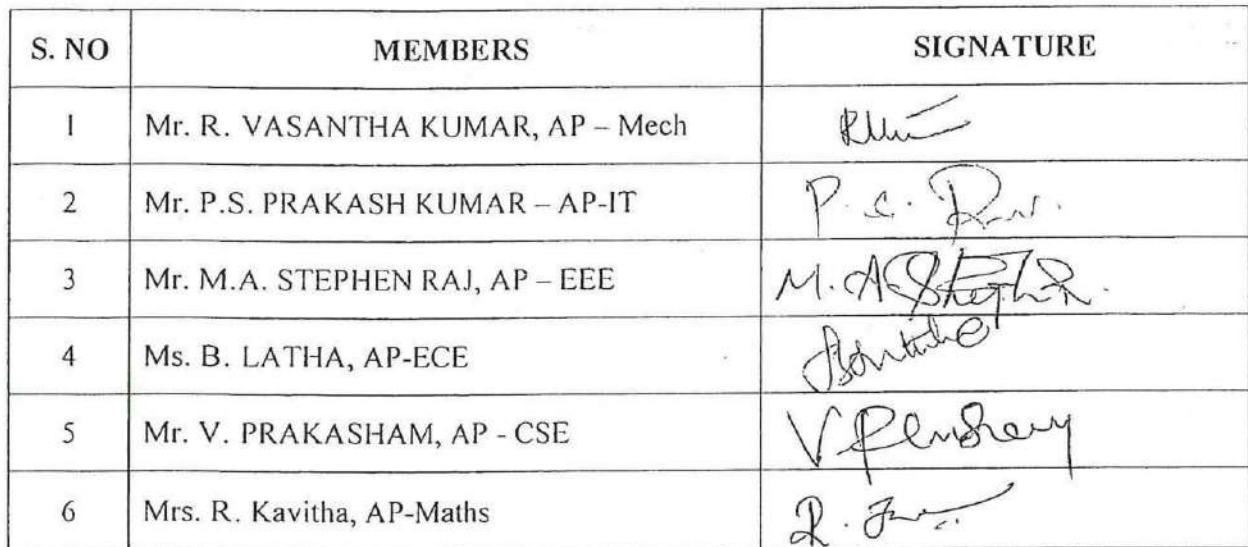 S. NO MEMBERS SIGNATURE
1 Mr. R. VASANTHA KUMAR, AP – Mech
2 Mr. P.S. PRAKASH KUMAR – AP-IT P. S.
3 Mr. M.A. STEPHEN RAJ, AP – EEE M. A
4 Ms. B. LATHA, AP-ECE
5 Mr. V. PRAKASHAM, AP - CSE V
6 Mrs. R. Kavitha, AP-Maths R.